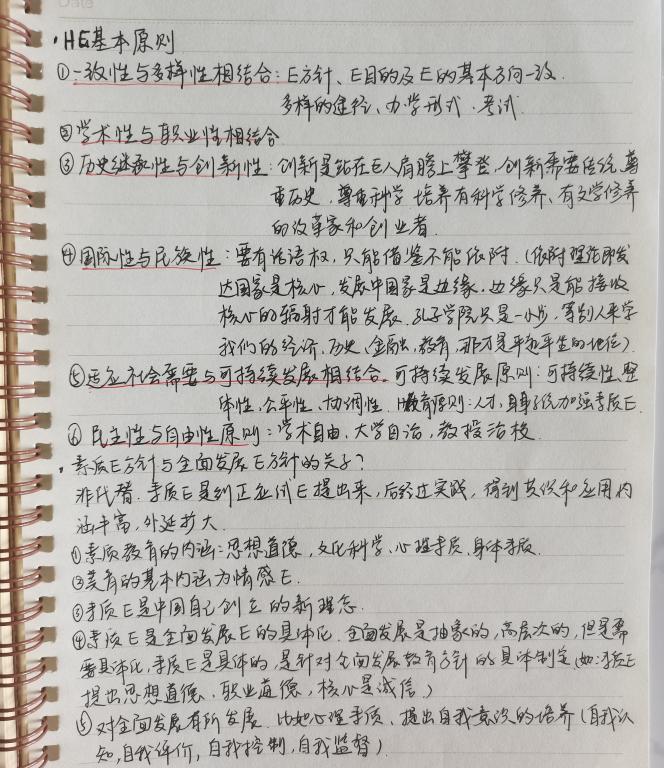 Date
·HE基本原则
①一致性与多样性相结合:E方针、E目的及E的基本方向一致.
多样的途径、办学形式、考试.
②学术性与职业性相结合
③历史继承性与创新性:创新是站在巨人肩膀上攀登,创新需要传统,尊
重历史,尊重科学 培养有科学修养、有文学修养
的改革家和创业者.
④国际性与民族性:要有话语权,只能借鉴不能依附.(依附理论即发
达国家是核心,发展中国家是边缘,边缘只是能接收
核心的辐射才能发展,孔子学院只是一小步,等别人来学
我们的经济、历史、金融、教育,那才是平起平坐的地位).
⑤适应社会需要与可持续发展相结合.可持续发展原则:可持续性、整
体性、公平性、协调性. 教育原则:人才,自身加强素质E.
⑥民主性与自由性原则:学术自由,大学自治,教授治校.
·素质E方针与全面发展E方针的关系?
非代替.素质E是纠正应试E提出来,后经过实践,得到共识和应用内
涵丰富,外延扩大.
①素质教育的内涵:思想道德,文化科学、心理素质、身体素质.
②美育的基本内涵为情感E.
③素质E是中国自己创立的新理念.
④素质E是全面发展E的具体化.全面发展是抽象的,高层次的,但是需
要具体化,素质E是具体的,是针对全面发展教育方针的具体制定(如:素质E
提出思想道德、职业道德,核心是诚信.)
⑤对全面发展有所发展.比如心理素质、提出自我意识的培养(自我认
知,自我评价,自我控制,自我监督).